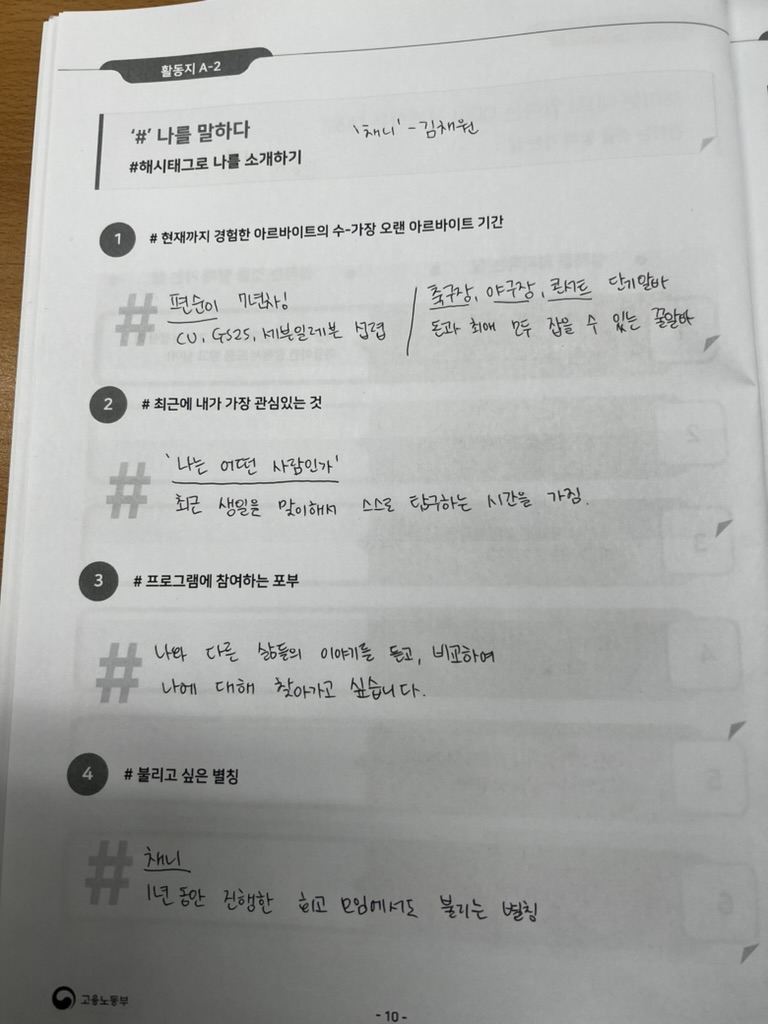 활동지 A-2
'#' 나를 말하다
'채니' - 김채원
#해시태그로 나를 소개하기
1
# 현재까지 경험한 아르바이트의 수-가장 오랜 아르바이트 기간
# 편순이 7년차!
CU, GS25, 세븐일레븐 섭렵
축구장, 야구장, 콘서트 단기알바
돈과 최애 모두 잡을 수 있는 꿀알바
2
# 최근에 내가 가장 관심있는 것
# '나는 어떤 사람인가'
최근 생일을 맞이해서 스스로 탐구하는 시간을 가짐.
3
# 프로그램에 참여하는 포부
# 나와 다른 삶들의 이야기를 듣고, 비교하여
나에 대해 찾아가고 싶습니다.
4
# 불리고 싶은 별칭
# 채니
1년 동안 진행한 회고 모임에서도 불리는 별칭
고용노동부
- 10 -